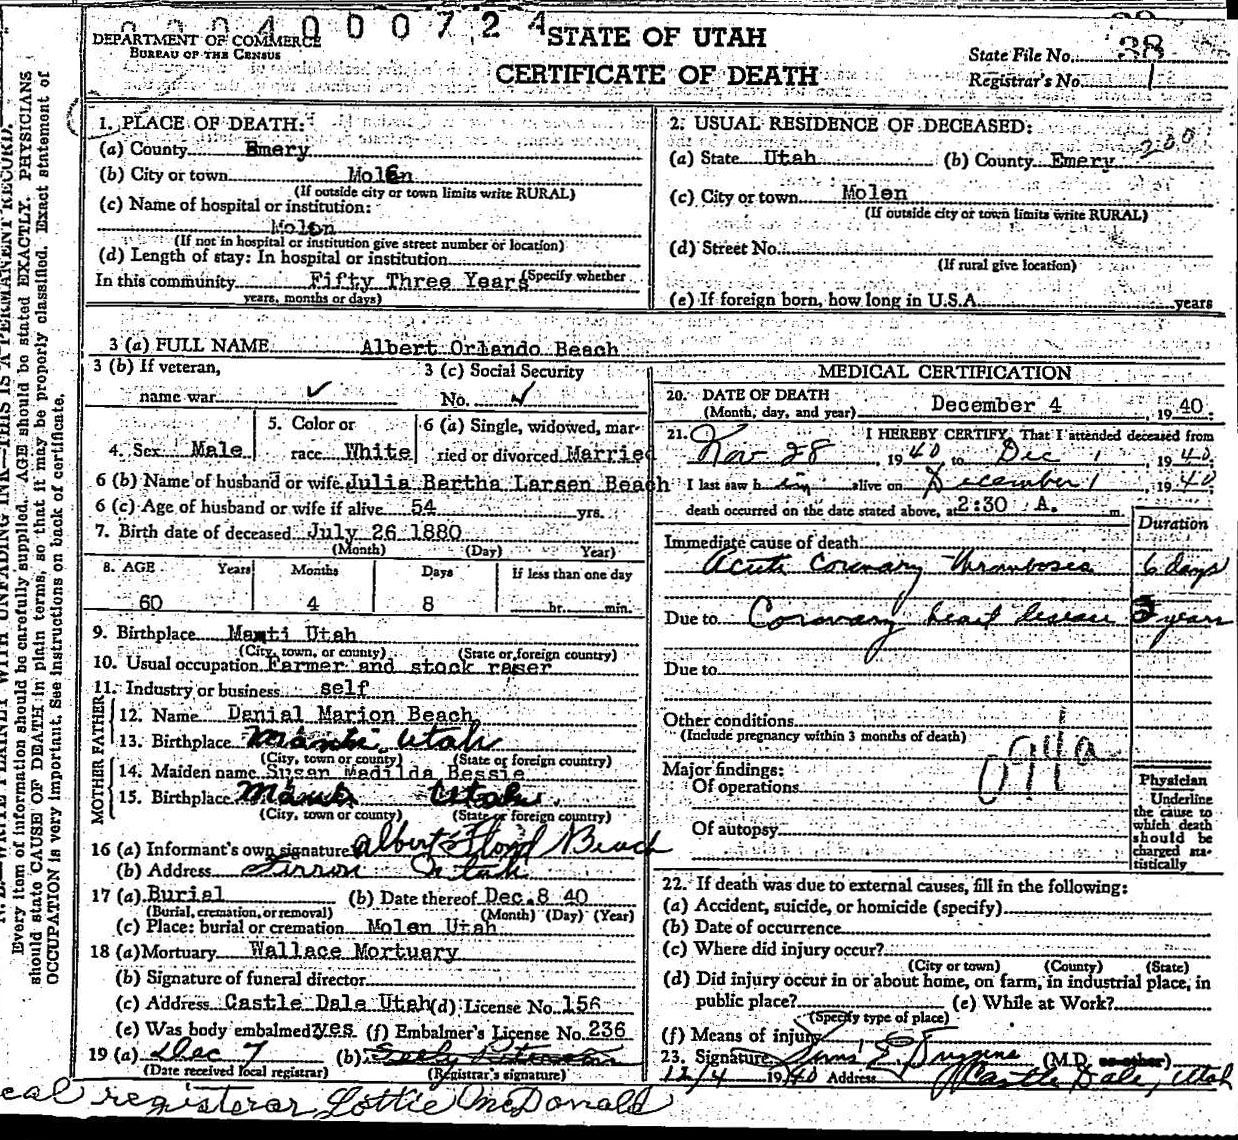 0004000724
DEPARTMENT OF COMMERCE
BUREAU OF THE CENSUS
STATE OF UTAH
CERTIFICATE OF DEATH
State File No. 38
Registrar's No. 1
1. PLACE OF DEATH:
(a) County Emery
(b) City or town Molen
(If outside city or town limits write RURAL)
(c) Name of hospital or institution:
Molen
(If not in hospital or institution give street number or location)
(d) Length of stay: In hospital or institution
In this community Fifty Three Years (Specify whether
years, months or days)
2. USUAL RESIDENCE OF DECEASED:
200
(a) State Utah (b) County Emery
(c) City or town Molen
(If outside city or town limits write RURAL)
(d) Street No.
(If rural give location)
(e) If foreign born, how long in U.S.A. years
3 (a) FULL NAME Albert Orlando Beach
3 (b) If veteran,
name war ✓
3 (c) Social Security
No. ✓
4. Sex Male
5. Color or
race White
6 (a) Single, widowed, mar-
ried or divorced Married
6 (b) Name of husband or wife Julia Bertha Larsen Beach
6 (c) Age of husband or wife if alive 54 yrs.
7. Birth date of deceased July 26 1880
(Month) (Day) Year)
8. AGE Years Months Days If less than one day
60 4 8 hr. min.
9. Birthplace Manti Utah
(City, town, or county) (State or foreign country)
10. Usual occupation Farmer and stock raser
11. Industry or business self
FATHER
12. Name Denial Marion Beach
13. Birthplace Manti, Utah
(City, town or county) (State or foreign country)
MOTHER
14. Maiden name Susan Madilda Bessie
15. Birthplace Manti Utah.
(City, town or county) (State or foreign country)
16 (a) Informant's own signature Albert Floyd Beach
(b) Address Ferron Utah
17 (a) Burial (b) Date thereof Dec. 8 40
(Burial, cremation, or removal) (Month) (Day) (Year)
(c) Place: burial or cremation Molen Utah
18 (a) Mortuary Wallace Mortuary
(b) Signature of funeral director
(c) Address Castle Dale Utah (d) License No. 156
(e) Was body embalmed? yes (f) Embalmer's License No. 236
19 (a) Dec 7 (b)
(Date received local registrar) (Registrar's signature)
MEDICAL CERTIFICATION
20. DATE OF DEATH
(Month, day, and year) December 4, 1940.
21. I HEREBY CERTIFY, That I attended deceased from
Nov 28, 1940 to Dec 1, 1940.
I last saw h im alive on December 1, 1940
death occurred on the date stated above, at 2:30 A. m.
Duration
Immediate cause of death
Acute Coronary Thrombosis 6 days
Due to Coronary heart disease years
Due to
Other conditions
(Include pregnancy within 3 months of death)
094a
Major findings:
Of operations
Of autopsy
Physician
Underline
the cause to
which death
should be
charged sta-
tistically
22. If death was due to external causes, fill in the following:
(a) Accident, suicide, or homicide (specify)
(b) Date of occurrence
(c) Where did injury occur?
(City or town) (County) (State)
(d) Did injury occur in or about home, on farm, in industrial place, in
public place? (e) While at Work?
(Specify type of place)
(f) Means of injury
23. Signature (M.D. or other)
12/4 1940 Address Castle Dale, Utah
registerar Lottie McDonald
N. B.—WRITE PLAINLY WITH UNFADING INK—THIS IS A PERMANENT RECORD.
Every item of information should be carefully supplied. AGE should be stated EXACTLY. PHYSICIANS
should state CAUSE OF DEATH in plain terms, so that it may be properly classified. Exact statement of
OCCUPATION is very important. See instructions on back of certificate.